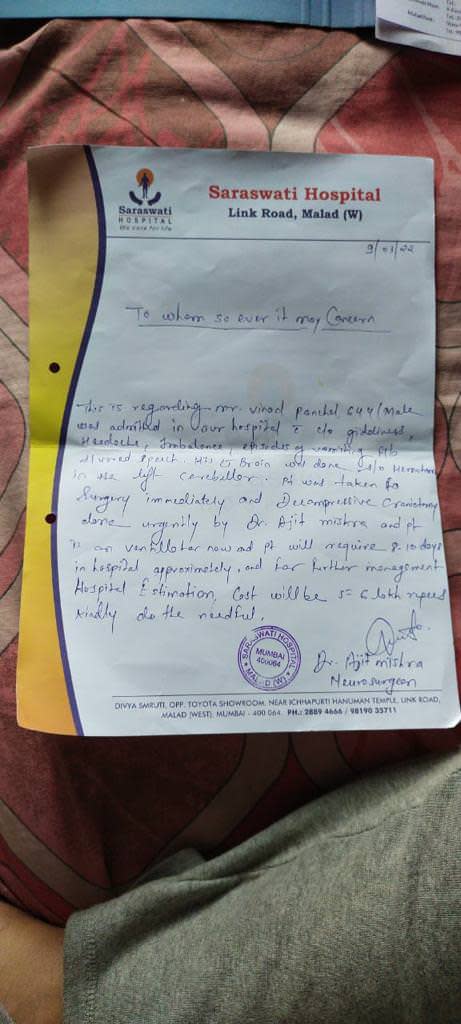 Saraswati
HOSPITAL
We care for life
Saraswati Hospital
Link Road, Malad (W)
9/01/22
To whom so ever it may Concern
This is regarding mr. vinod panchal 64y/Male
was admitted in our hospital c c/o giddiness,
Headache, Imbalance, episodes of vomiting f/b
slured speech. His Brain was done s/o
in the left cerebellar. pt was taken for
Surgery immediately and Decompressive Craniotomy
done urgently by Dr. Ajit mishra and pt
is on ventilator now and pt will require 8-10 days
in hospital approximately, and for further management
Hospital Estimation, Cost will be 5-6 lakh rupees
kindly do the needful.
SARASWATI HOSPITAL
MUMBAI
400064
MALAD (W)
Dr. Ajit mishra
Neurosurgeon
DIVYA SMRUTI, OPP. TOYOTA SHOWROOM, NEAR ICHHAPURTI HANUMAN TEMPLE, LINK ROAD,
MALAD (WEST), MUMBAI - 400 064. PH.: 2889 4666 / 98190 35711